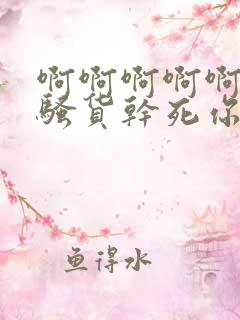 啊啊啊啊啊
骚货幹死你
鱼得水